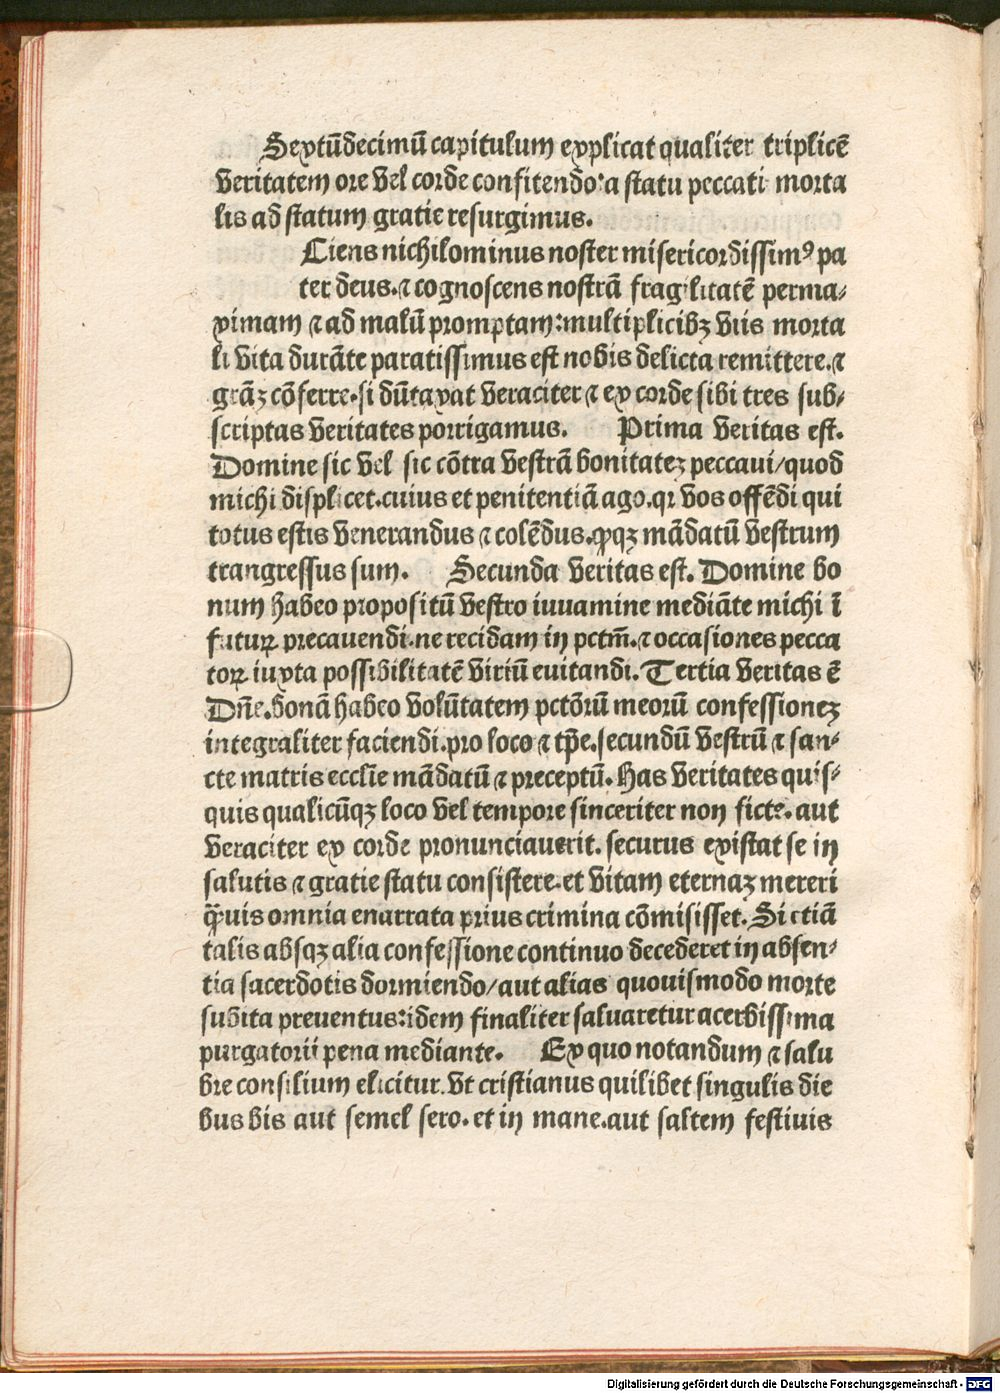 Sextūdecimū capitulum explicat qualiter triplicē
veritatem ore vel corde confitendo: a statu peccati morta
lis ad statum gratie resurgimus.
Ciens nichilominus noster misericordissimꝰ pa
ter deus. ⁊ cognoscens nostrā fragilitatē perma⸗
ximam ⁊ ad malū promptam: multiplicibꝫ viis morta
li vita durāte paratissimus est nobis delicta remittere. ⁊
grāꝫ cōferre. si dūtaxat veraciter ⁊ ex corde sibi tres sub⸗
scriptas veritates porrigamus. Prima veritas est.
Domine sic vel sic cōtra vestrā bonitateꝫ peccavi/quod
michi displicet. cuius et penitentiā ago. qꝛ vos offēdi qui
totus estis venerandus ⁊ colēdus. ꝓqꝫ mādatū vestrum
trangressus sum. Secunda veritas est. Domine bo
num habeo propositū vestro iuvamine mediāte michi ī
futuꝝ precavendi. ne recidam in pctm̄. ⁊ occasiones pecca
toꝝ iuxta possibilitatē viriū evitandi. Tertia veritas ē
Dn̄e. bonā habeo volūtatem pctōrū meorū confessioneꝫ
integraliter faciendi. pro loco ⁊ tp̄e. secundū vestrū ⁊ san⸗
cte matris eccl̄ie mādatū ⁊ preceptū. Has veritates quis⸗
quis qualicūqꝫ loco vel tempore sinceriter non ficte. aut
veraciter ex corde pronunciaverit. securus existat se in
salutis ⁊ gratie statu consistere. et vitam eternaꝫ mereri
q̄uis omnia enarrata prius crimina cōmisisset. Si etiā
talis absqꝫ alia confessione continuo decederet in absen⸗
tia sacerdotis dormiendo/aut alias quovismodo morte
subita preventus: idem finaliter salvaretur acerbissima
purgatorii pena mediante. Ex quo notandum ⁊ salu
bre consilium elicitur. vt cristianus quilibet singulis die
bus bis aut semel sero. et in mane. aut saltem festivis
Digitalisierung gefördert durch die Deutsche Forschungsgemeinschaft - DFG